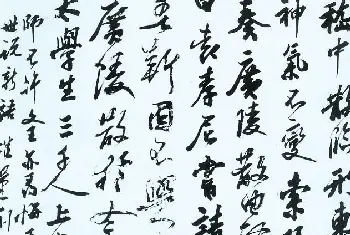 嵇中散臨刑東
神氣不變索
奏廣陵散曲
曰袁孝尼嘗請
吾靳固不與
廣陵散於今
太學生三千人上
師不許文王亦尋悔
世說新語雅量